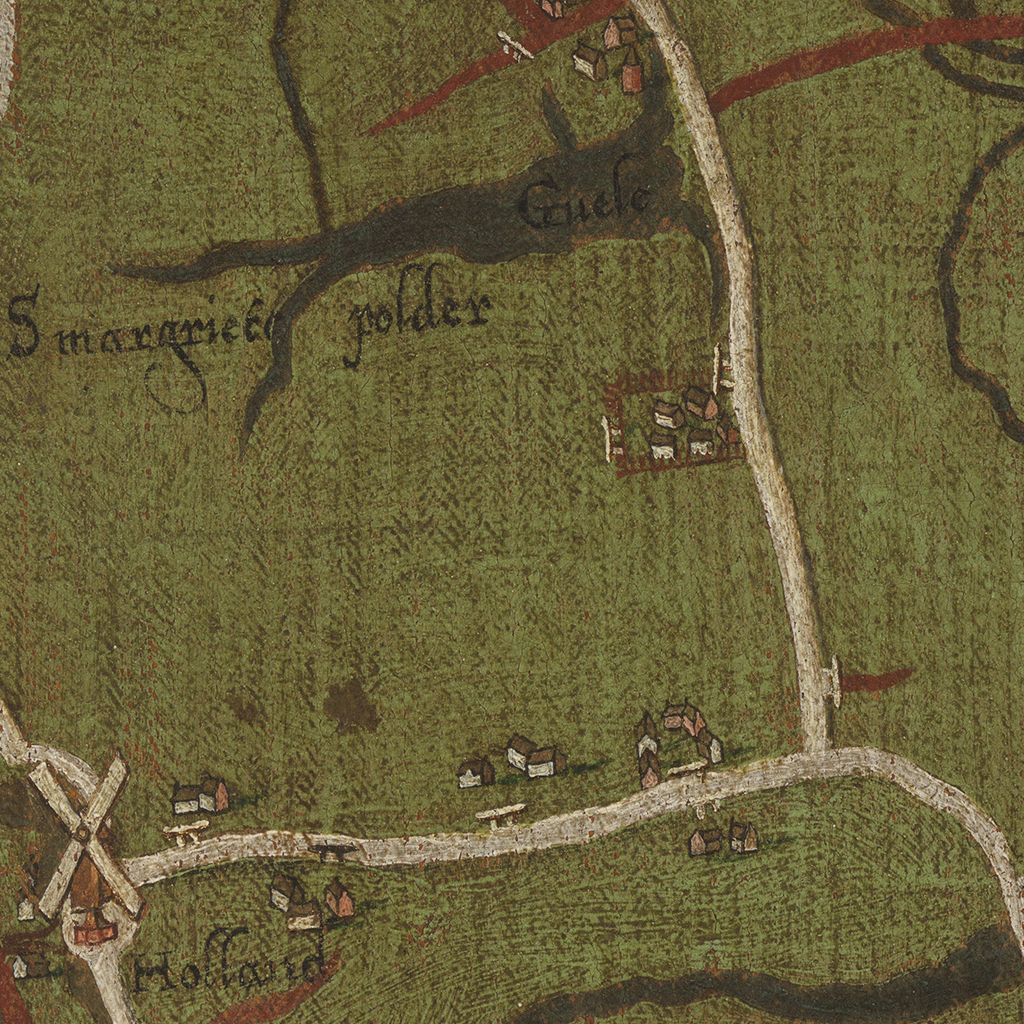 Guele
S margriete polder
Holland